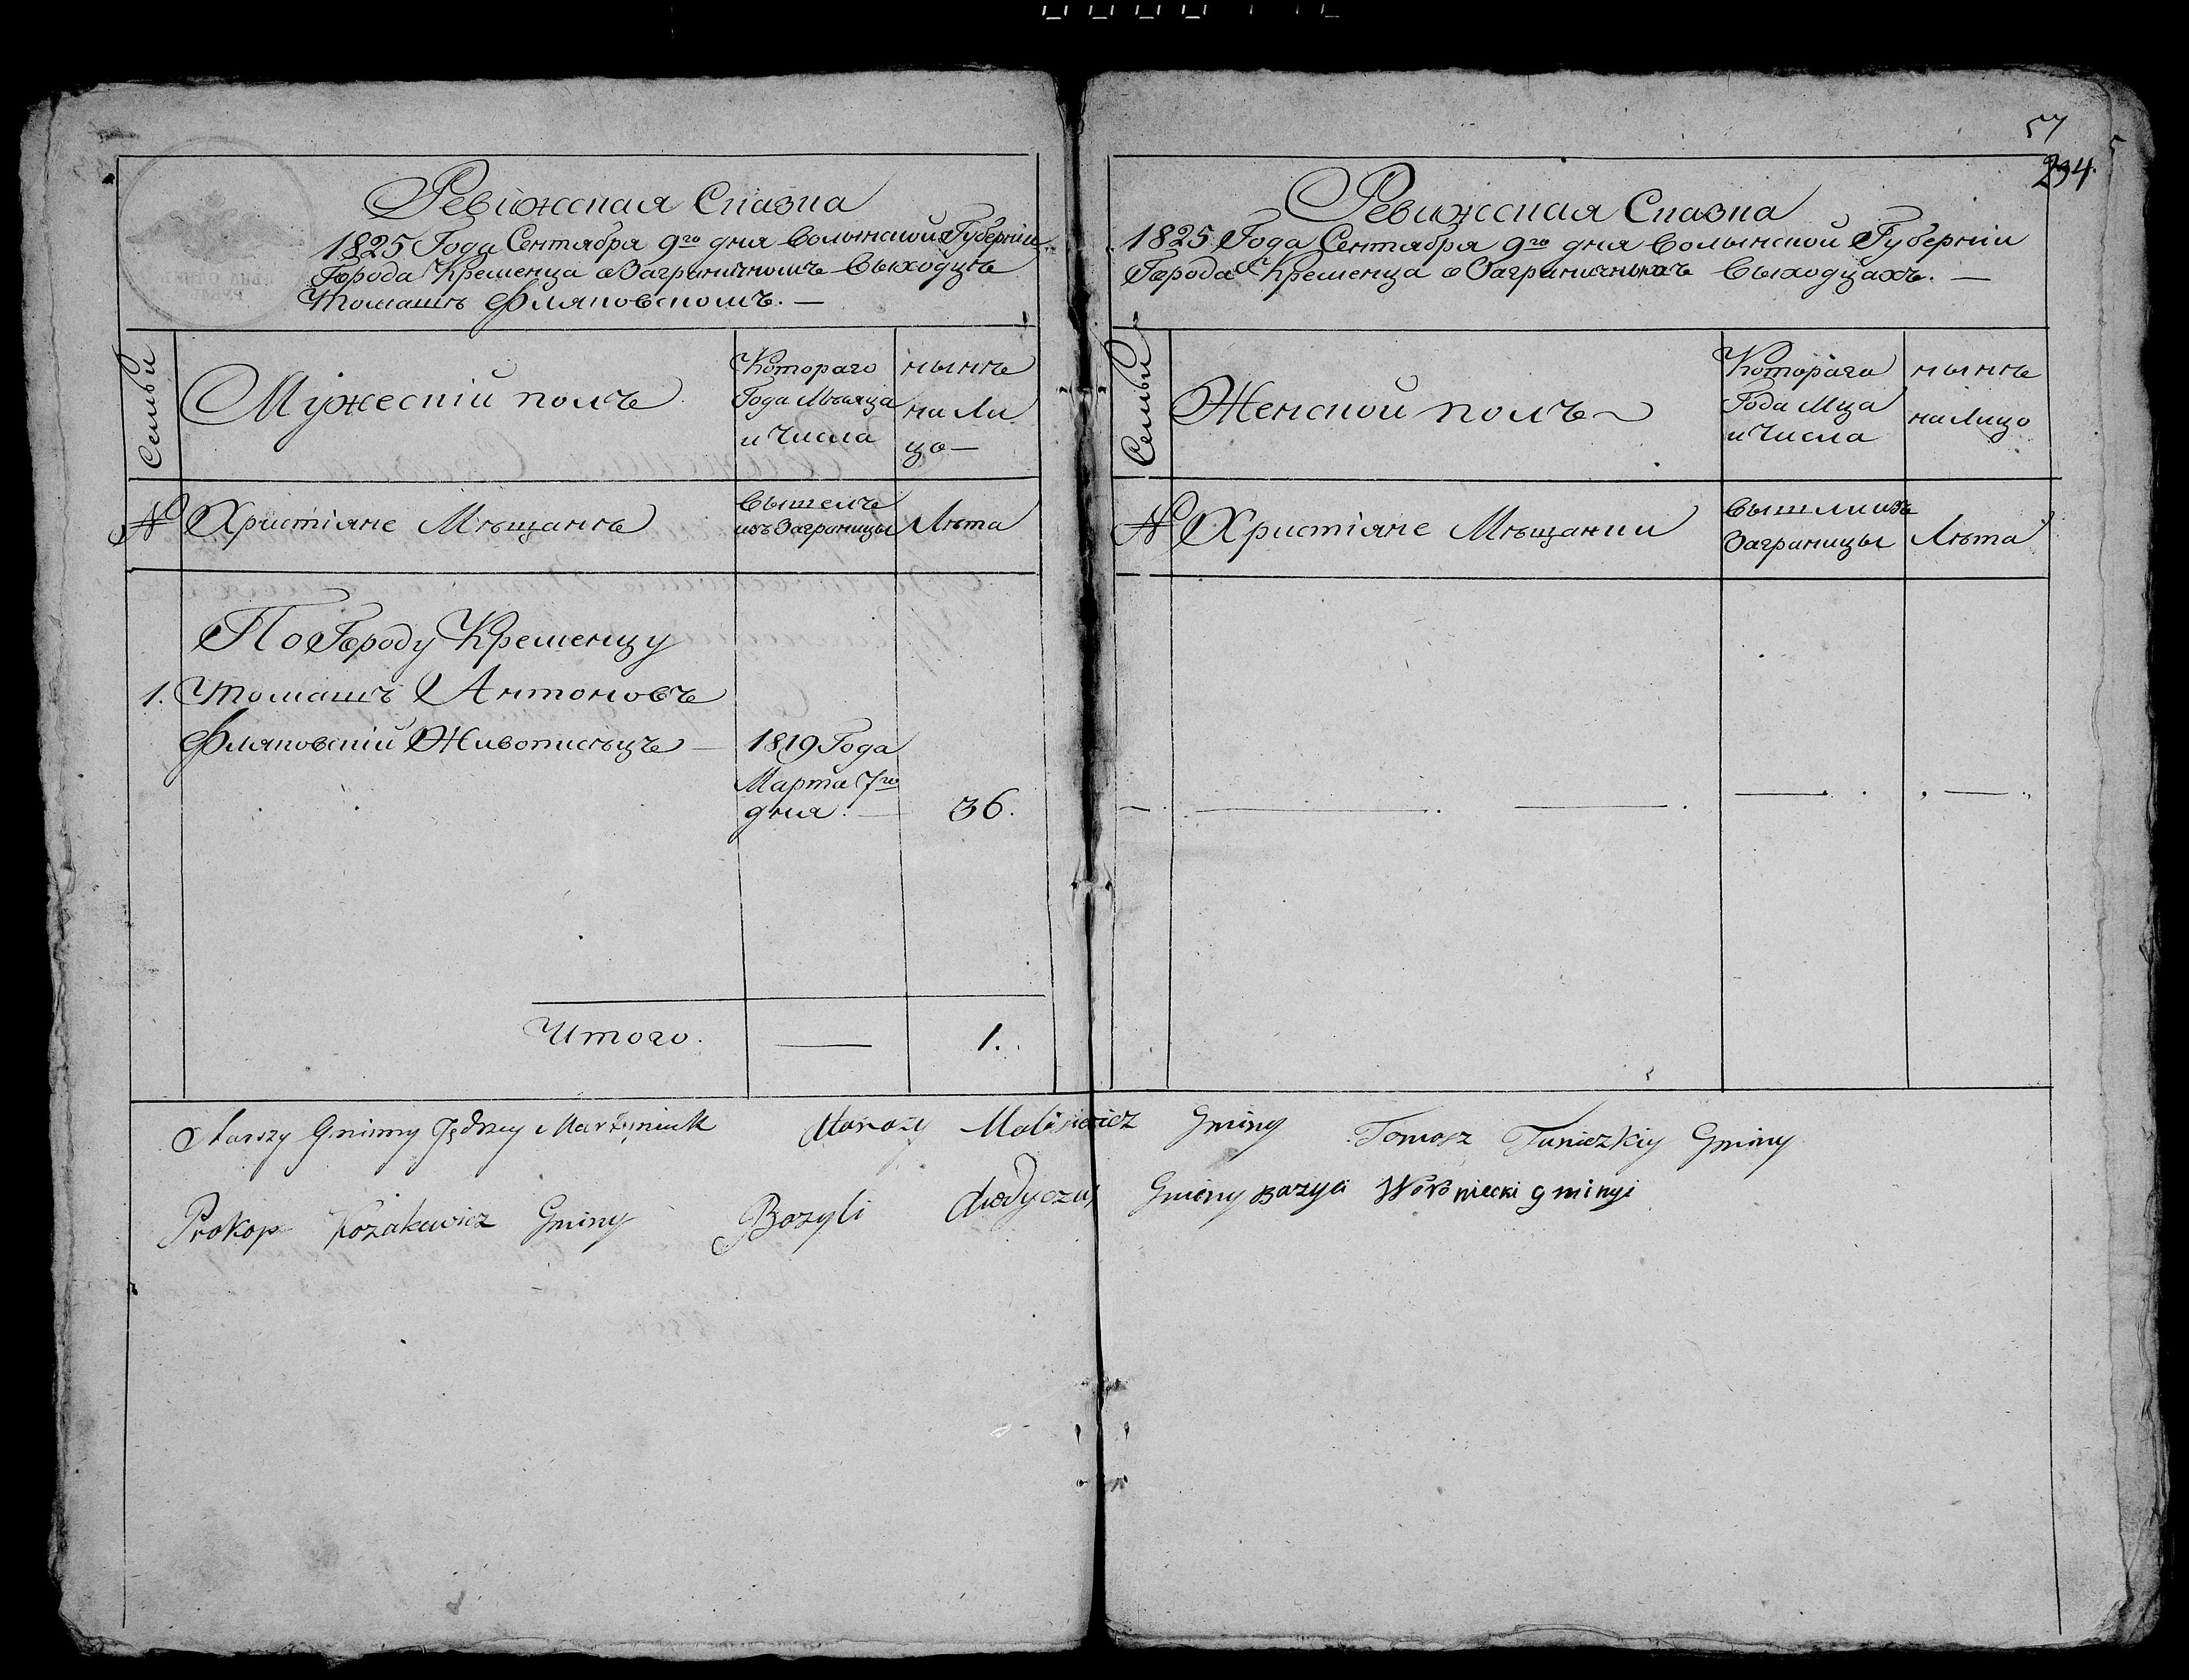 57
234.
Ревижская Сказка
1825 Года Сентября 9го дня Волынской Губерніи
Города Кременца о Заграничномъ Выходцѣ
Томашѣ Фляковскомъ. —
Семьи
Мужескій полъ
Котораго
Года Мѣсяца
и Числа
нынѣ
на Ли
цо —
№
Христіяне Мѣщане
Вышелъ
изъ Заграницы
Лѣта
По Городу Кременцу
1. Томашъ Антоновъ
Фляковскій Живописецъ — 1819 Года
Марта 7го
дня. — 36.
Итого. — 1.
Ревижская Сказка
1825 Года Сентября 9го дня Волынской Губерніи
Города Кременца о Заграничныхъ Выходцахъ. —
Семьи
Женской полъ
Котораго
Года Мца
и Числа
нынѣ
на Лицо
№
Христіяне Мѣщанки
Вышли изъ
Заграницы
Лѣта
Starszy Gminny Jędrzej Martyniuk Maliszewicz Gminy Tomasz Gminy
Prokop Kozakiewicz Gminy Bazyli Gminy Bazyli Woroniecki gminyi